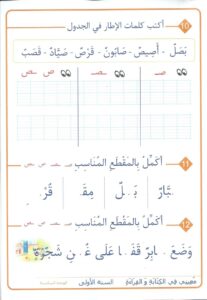 10 أكتب كلمات الإطار في الجدول
بَصَلٌ - أَصِيصٌ - صَابُونٌ - قَرْصٌ - صَيَّادٌ - قَصَبٌ
صـ ـصـ ص
11 أكمل بالمقطع المناسب
ـيَّارٌ بـ ـلٌ مِقـ قُرْ
12 أكمل بالمقطع المناسب
وَضَعَ ـابِرٌ قَفَـ ـا عَلَى غُـ ـنِ شَجَرَةٍ
معيني في الكتابة و القراءة السنة الأولى